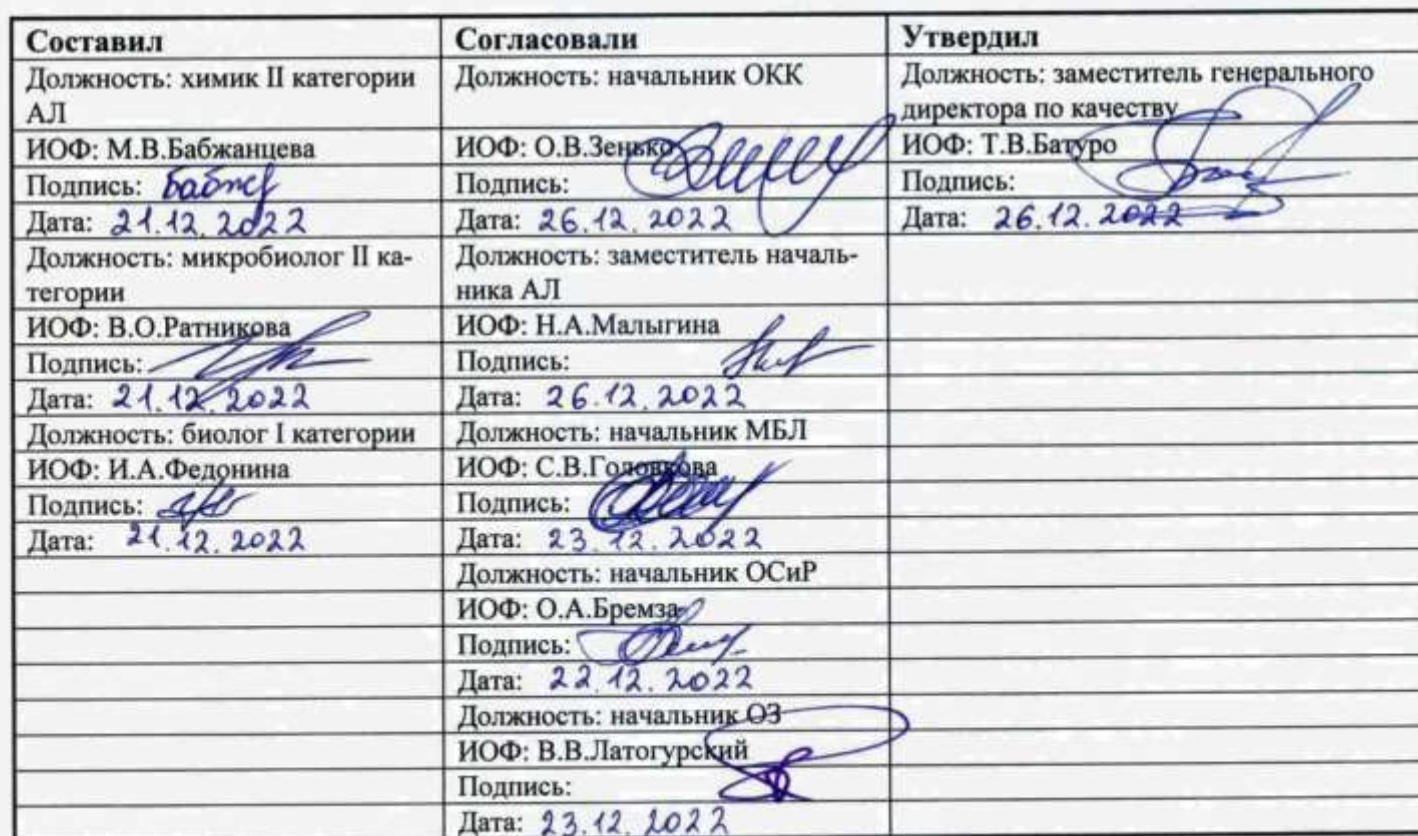 Составил Согласовали Утвердил
Должность: химик II категории Должность: начальник ОКК Должность: заместитель генерального
АЛ директора по качеству
ИОФ: М.В.Бабжанцева ИОФ: О.В.Зенько ИОФ: Т.В.Батуро
Подпись: Подпись: Подпись:
Дата: 21.12.2022 Дата: 26.12.2022 Дата: 26.12.2022
Должность: микробиолог II ка- Должность: заместитель началь-
тегории ника АЛ
ИОФ: В.О.Ратникова ИОФ: Н.А.Малыгина
Подпись: Подпись:
Дата: 21.12.2022 Дата: 26.12.2022
Должность: биолог I категории Должность: начальник МБЛ
ИОФ: И.А.Федонина ИОФ: С.В.Головкова
Подпись: Подпись:
Дата: 21.12.2022 Дата: 23.12.2022
Должность: начальник ОСиР
ИОФ: О.А.Бремза
Подпись:
Дата: 22.12.2022
Должность: начальник ОЗ
ИОФ: В.В.Латогурский
Подпись:
Дата: 23.12.2022